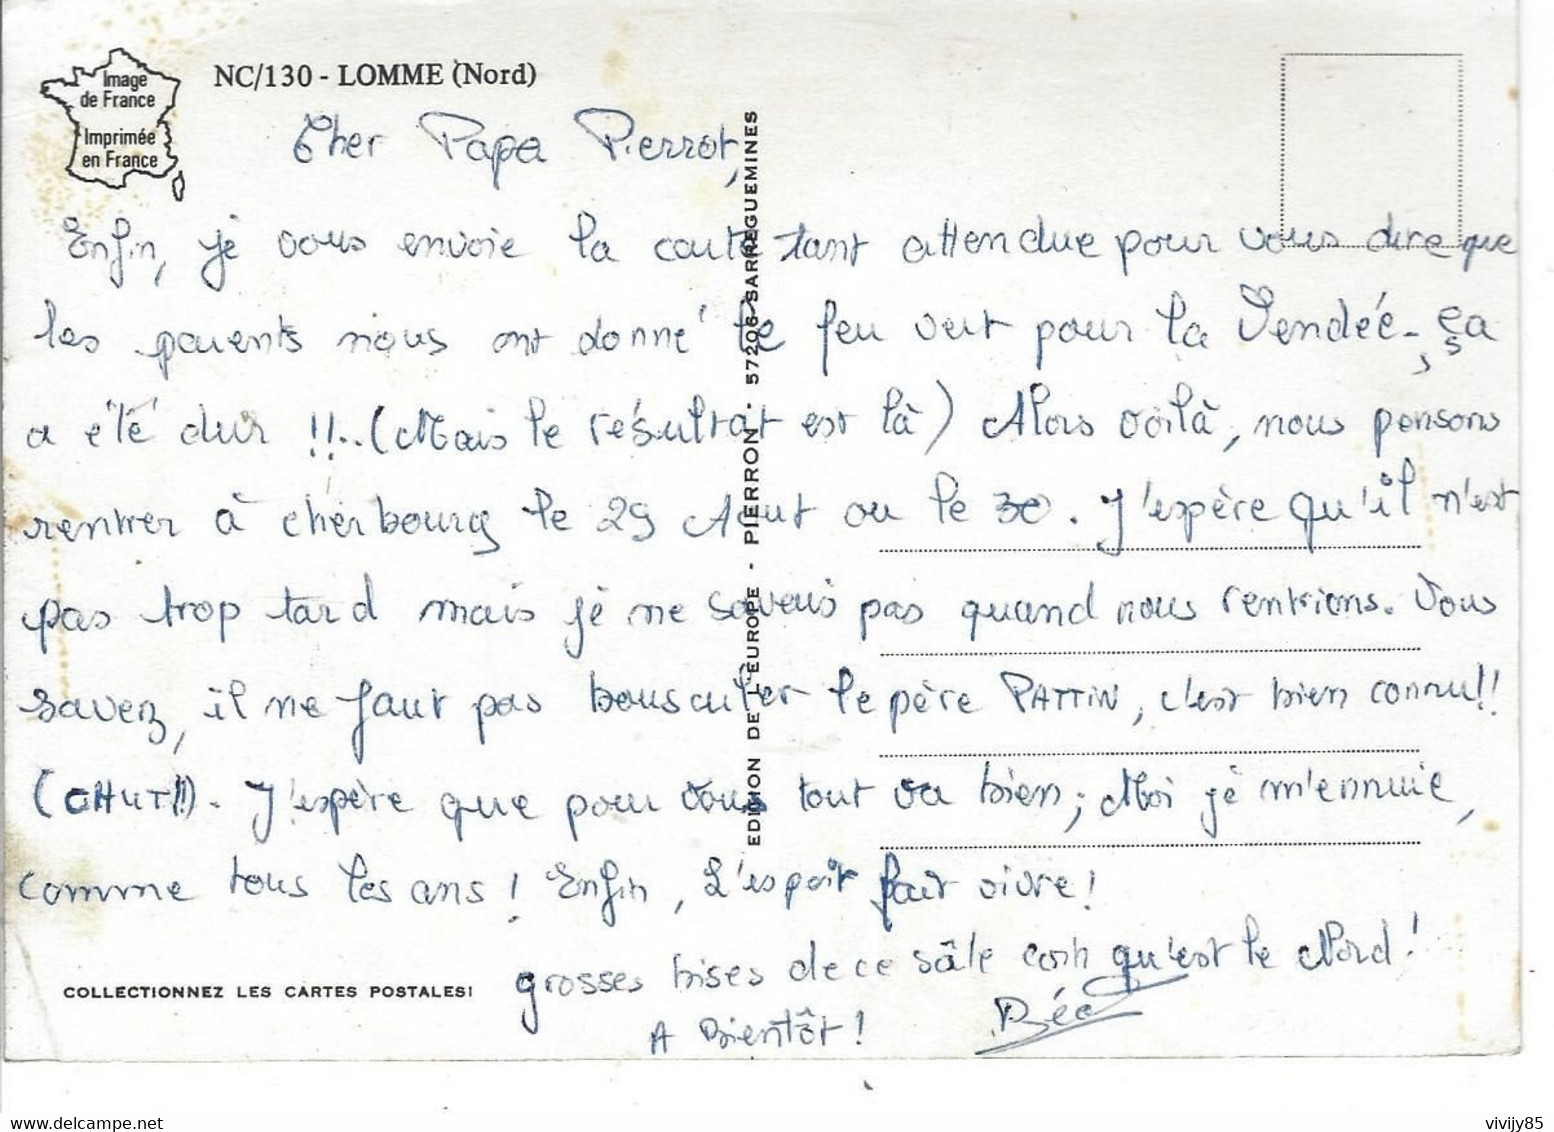 Image
de France
Imprimée
en France
NC/130 - LOMME (Nord)
Cher Papa Pierrot,
Enfin, je vous envoie la carte tant attendue pour vous dire que
les parents nous ont donné le feu vert pour la Vendée, ça
a été dur !!.. (Mais le résultat est là) Alors voilà, nous pensons
rentrer à cherbourg le 29 Aout ou le 30. J'espère qu'il n'est
pas trop tard mais je ne savais pas quand nous rentrions. Vous
savez, il ne faut pas bousculer le père PATTIN, c'est bien connu!!
(CHUT!!). J'espère que pour vous tout va bien; Moi je m'ennuie,
comme tous les ans ! Enfin, L'espoir fait vivre !
grosses bises de ce sâle coin qu'est le Nord !
A Bientôt ! Béa
COLLECTIONNEZ LES CARTES POSTALES!
EDITION DE L'EUROPE - PIERRON - 57206 SARREGUEMINES
vivijy85